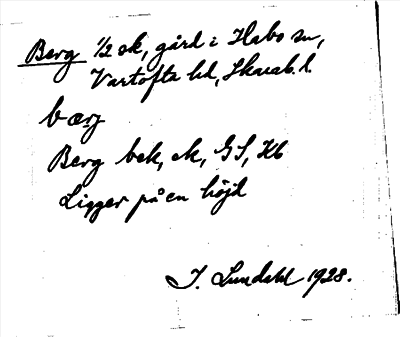 Berg 1/2 ek, gård i Habo sn,
Vartofta hd, Skarab. l.
bærj
Berg bek, ek, GS, Kb
Ligger på en höjd
I. Lundahl 1928.